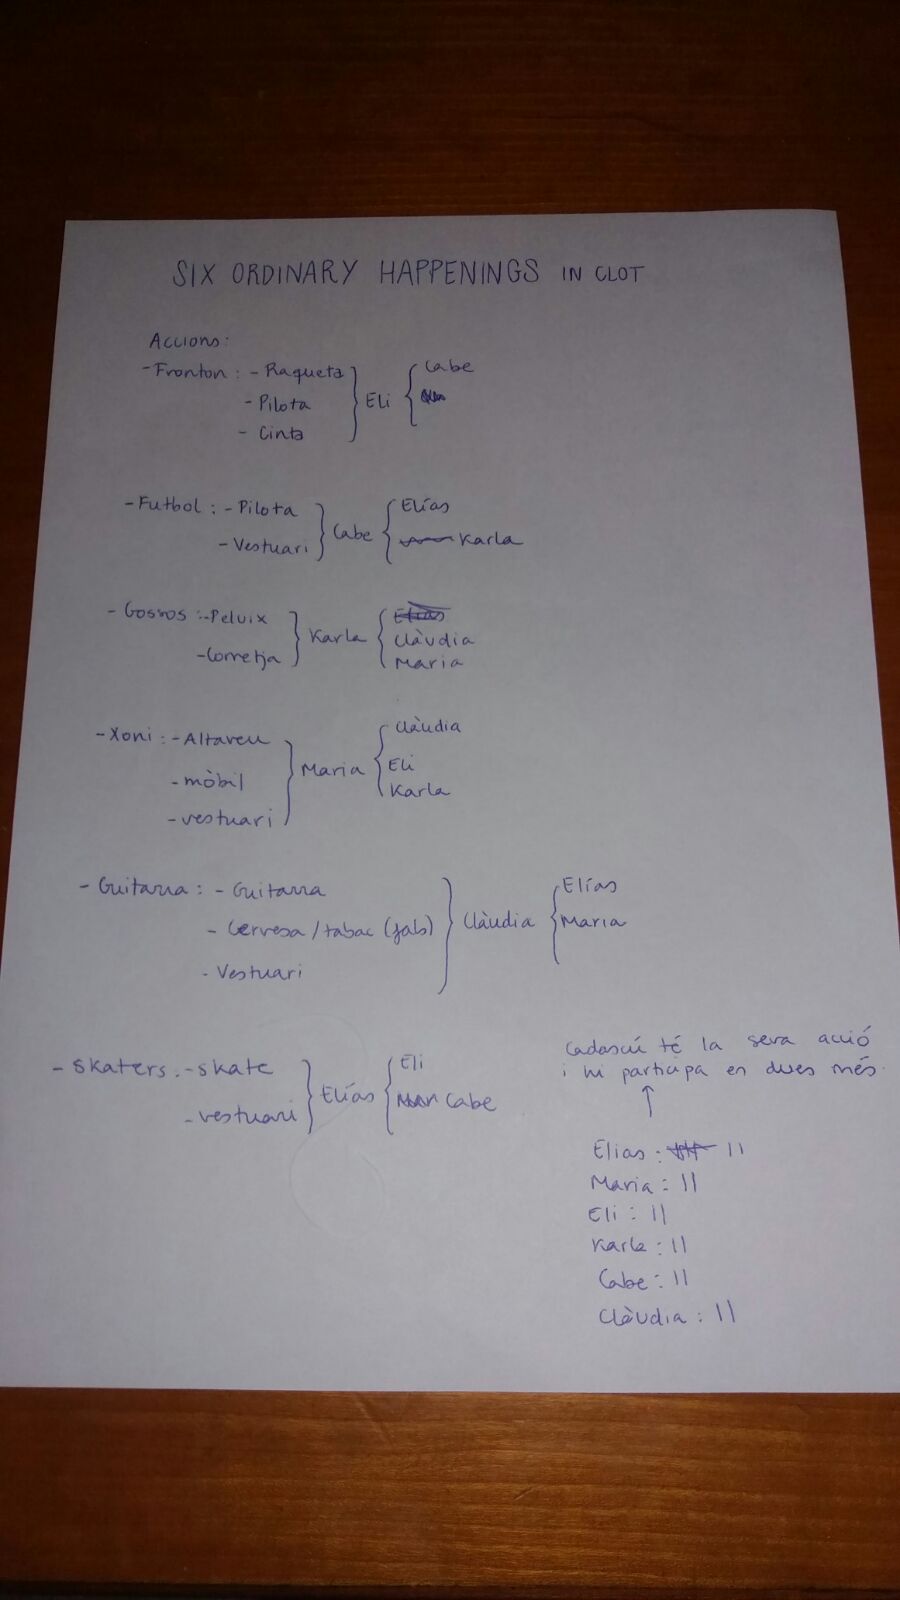 SIX ORDINARY HAPPENINGS IN CLOT
Accions:
- Fronton : - Raqueta } Eli { Cabe
- Pilota
- Cinta
- Futbol : - Pilota } Cabe { Elías
- Vestuari Karla
- Gossos : - Peluix } Karla { Elías
- Corretja Clàudia
Maria
- Xoni : - Altaveu } Maria { Clàudia
- mòbil Eli
- vestuari Karla
- Guitarra : - Guitarra } Clàudia { Elías
- Cervesa / tabac (fals) Maria
- Vestuari
- Skaters : - skate } Elías { Eli
- vestuari Cabe
Cadascú té la seva acció
i hi participa en dues més.
↑
Elias : II
Maria : II
Eli : II
Karla : II
Cabe : II
Clàudia : II